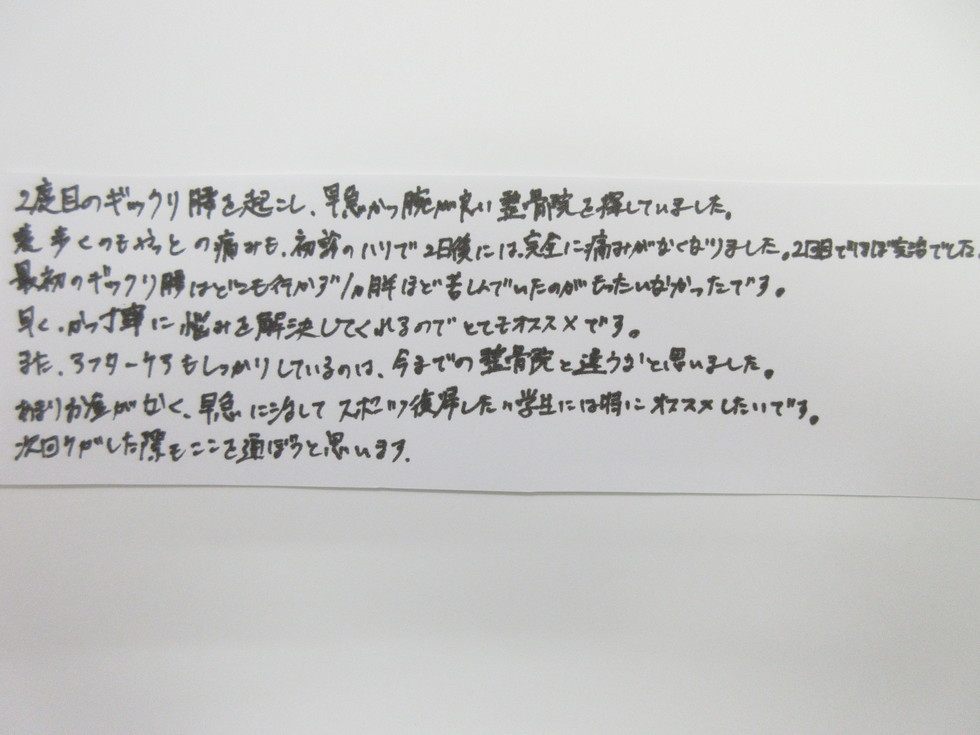 2度目のギックリ腰を起こし、早急かつ腕が良い整骨院を探していました。
歩くのもやっとの痛みも、初診のハリで2日後には、完全に痛みがなくなりました。2回目でほぼ完治でした。
最初のギックリ腰はどこも行かず1ヵ月半ほど苦しんでいたのがもったいなかったです。
早く、かつ丁寧に悩みを解決してくれるのでとてもオススメです。
また、アフターケアもしっかりしているのは、今までの整骨院と違うなと思いました。
あまりお金がなく、早急に治してスポーツ復帰したい学生には特にオススメしたいです。
次回ケガした際もここを選ぼうと思います.